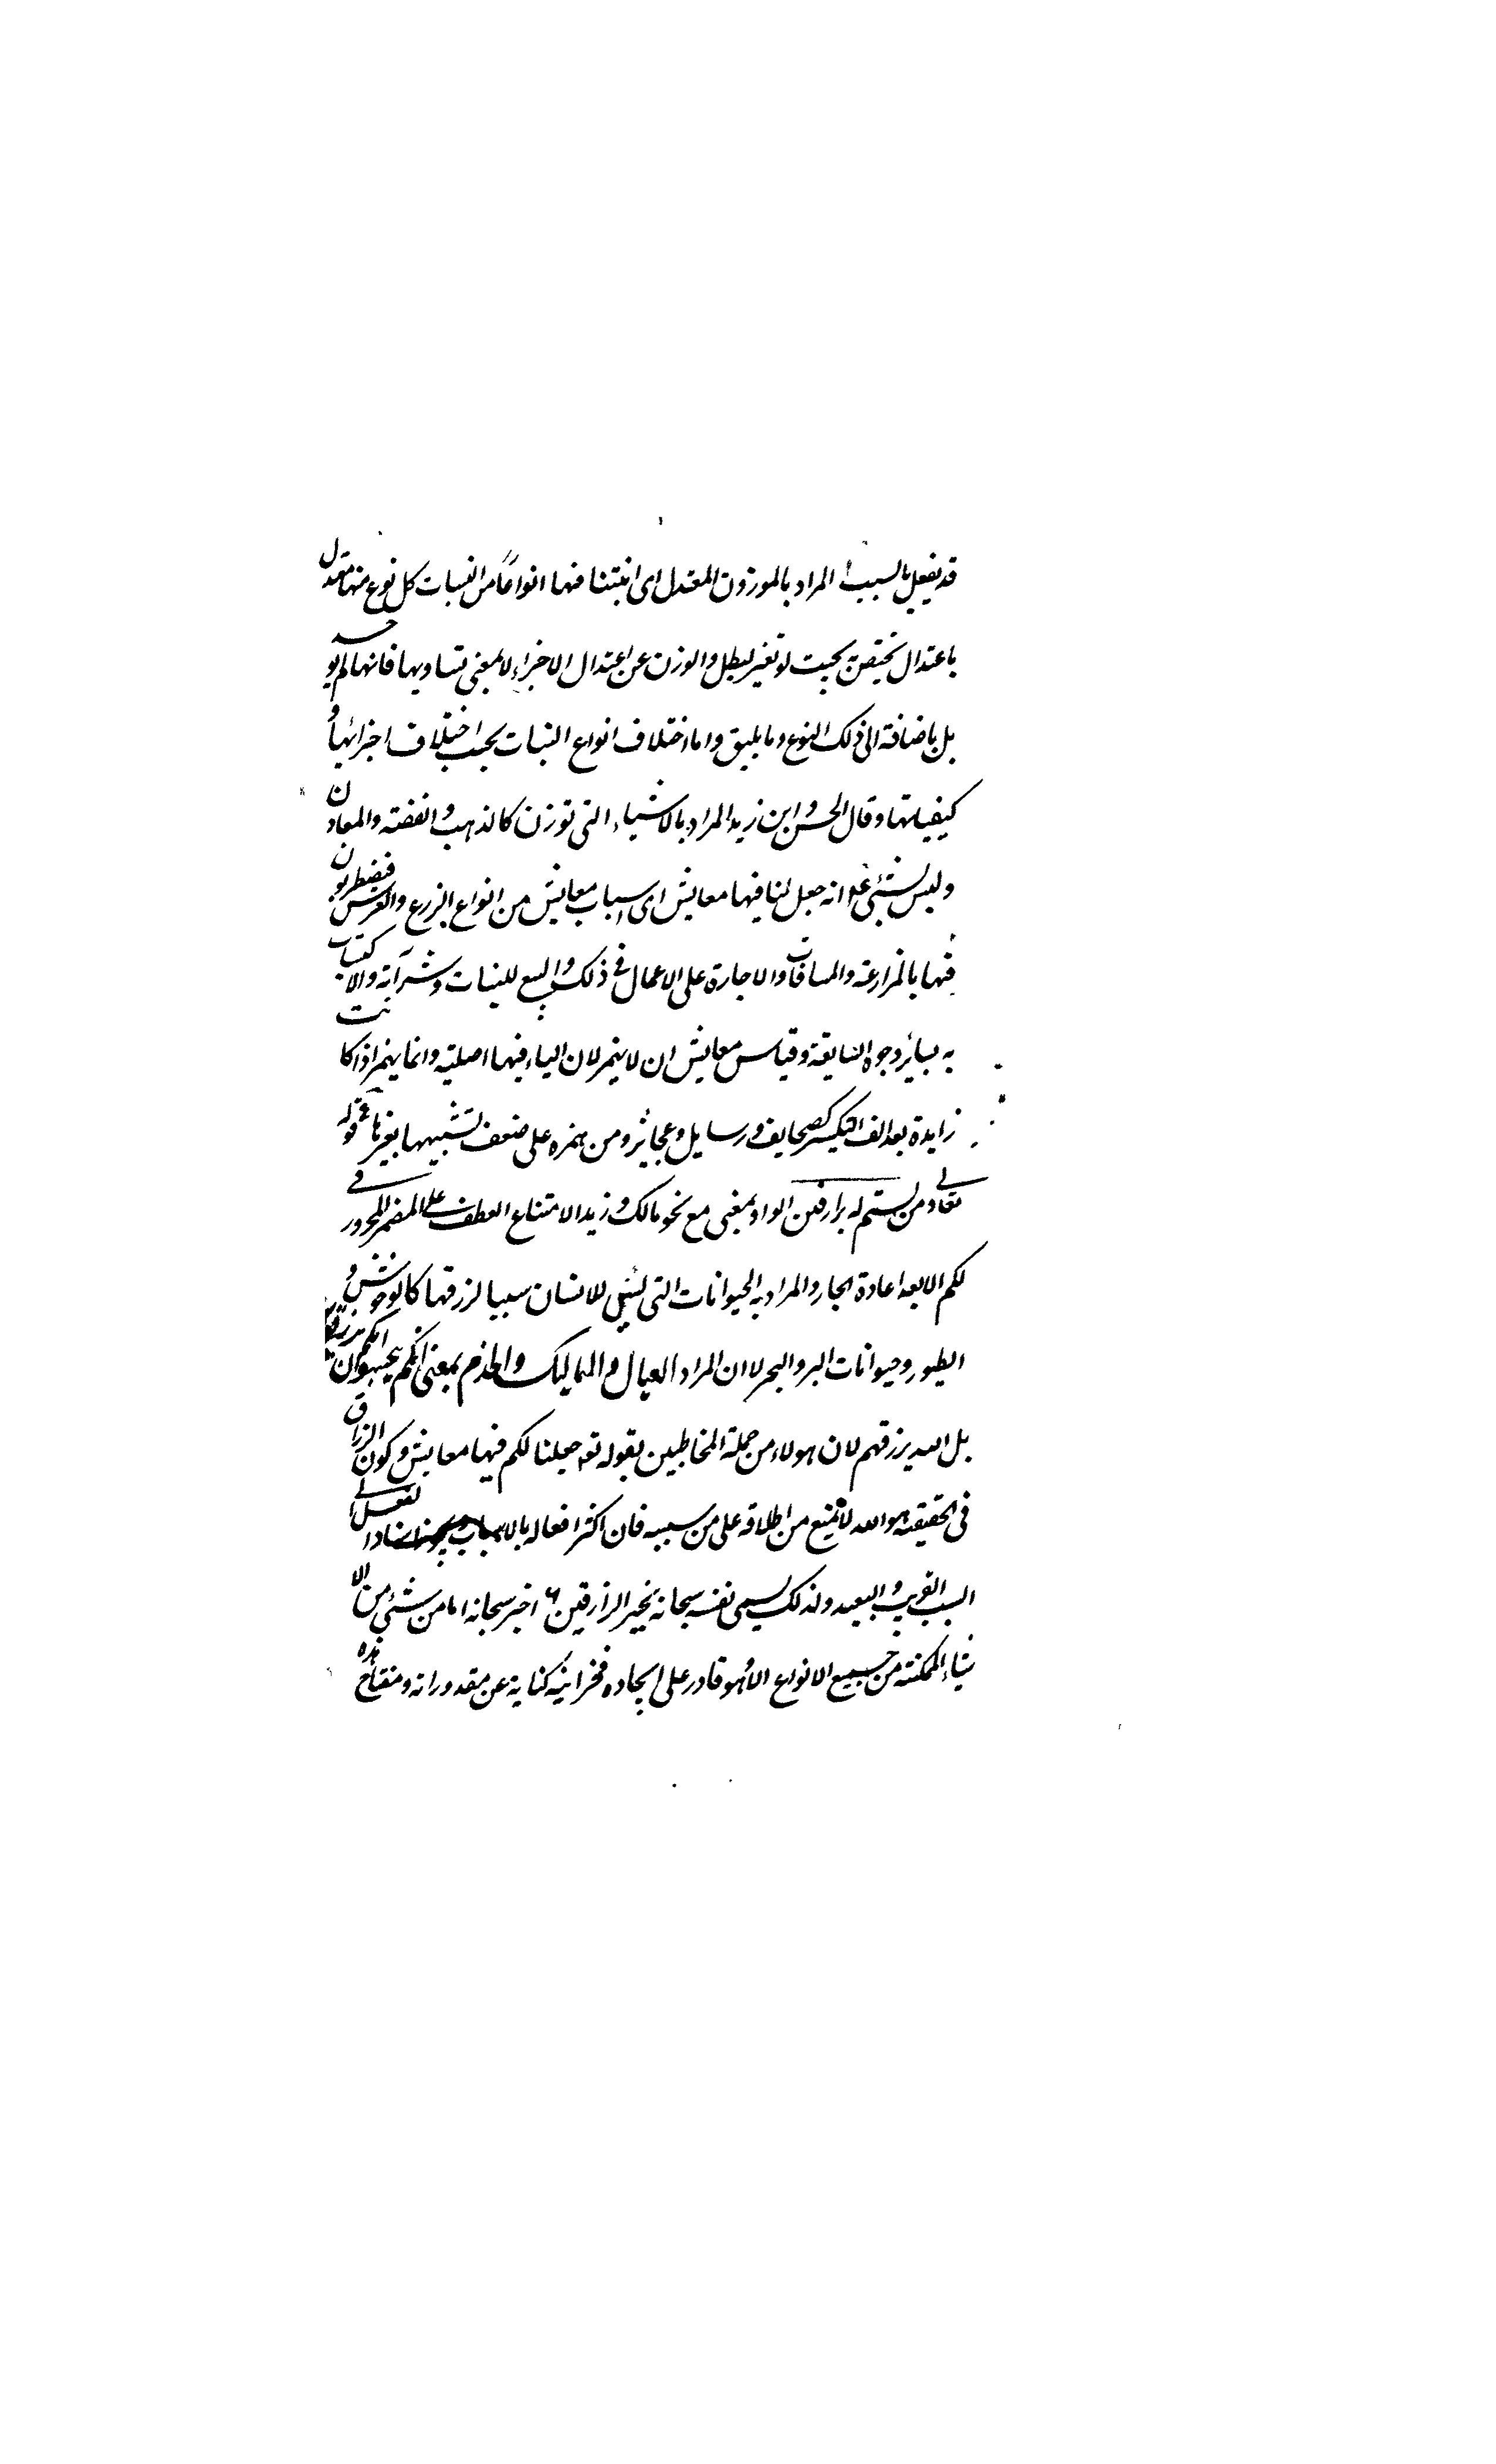 قد يفعل بالسبب المراد بالموزون المعتدل اى انبتنا فيها انواعًا من النبات كل نوع منها معتدل
باعتدال يختص به بحيث لو تغير لبطل والوزن عن اعتدال الاجزاء لا بمعنى تساويها فانها لم يوجد
بل باضافة الى ذلك النوع وما يليق واما اختلاف انواع النبات بحسب اختلاف اجزائها و
كيفياتها وقال الحسن وابن زيد المراد بالاشياء التى توزن كالذهب والفضة والمعادن
وليس بشئ انه جعل لنا فيها معايش اى اسباب معايش من انواع الزرع والغرس فيضطربون
فيها بالمزارعة والمساقات والاجارة على الاعمال فى ذلك والبيع للنبات وشرائه والاكتساب
به بسائر وجوه وقياس معايش ان لا يهمز لان الياء فيها اصلية وانما يهمز اذا كانت
زايدة بعد الف التكسير كصحايف ورسايل وعجائز ومن همزه على ضعف تشبيهها بغيرها قوله
تعالى ومن لستم له برازقين الواو بمعنى مع نحو مالك وزيد الامتناع العطف على المضمر المجرور فى
لكم الا بعد اعادة الجار والمراد به الحيوانات التى للانسان سببا لرزقها كالوحوش و
الطيور وحيوانات البر والبحر لا ان المراد العيال والمماليك والخدم بمعنى انكم تحسبون انكم ترزقونهم
بل الله يرزقهم لان هولاء من جملة المخاطبين بقوله تعـ وجعلنا لكم فيها معايش وكون الرزاق
فى الحقيقة هو الله لا يمنع من اطلاقه على من سببه فان اكثر افعاله بالاسباب
السبب القريب والبعيد ولذلك يسمى نفسه سبحانه بخير الرازقين ٦ اخبر سبحانه اما من شئ من الا
شياء الممكنة من جميع الانواع الا وهو قادر على ايجاده فخزاينه كناية عن مقدوراته ومفتاح هذه